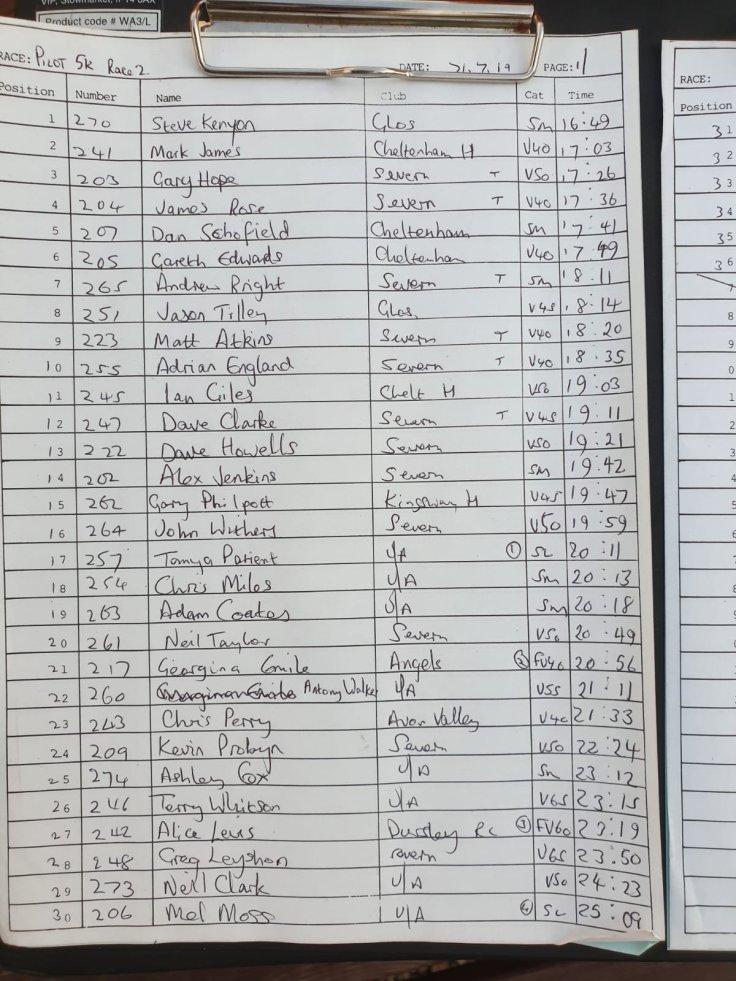 Product code # WA3/L
RACE: PILOT 5k Race 2 DATE: 21.7.19 PAGE: 1
Position Number Name Club Cat Time
1 270 Steve Kenyon Glos Sm 16:49
2 241 Mark James Cheltenham H V40 17:03
3 203 Gary Hope Severn T V50 17:26
4 204 James Rose Severn T V40 17:36
5 207 Dan Schofield Cheltenham Sm 17:41
6 205 Gareth Edwards Cheltenham V40 17:49
7 265 Andrew Bright Severn T Sm 18:11
8 251 Jason Tilley Glos. V45 18:14
9 223 Matt Atkins Severn T V40 18:20
10 255 Adrian England Severn T V40 18:35
11 245 Ian Giles Chelt H V50 19:03
12 247 Dave Clarke Severn T V45 19:11
13 222 Dave Howells Severn V50 19:21
14 202 Alex Jenkins Severn Sm 19:42
15 262 Gary Philpott Kingsway H V45 19:47
16 264 John Withers Severn V50 19:59
17 257 Tomya Patient U/A ① SL 20:11
18 254 Chris Miles U/A Sm 20:13
19 263 Adam Coates U/A Sm 20:18
20 261 Neil Taylor Severn V50 20:49
21 217 Georgina Smile Angels ② FV40 20:56
22 260 Antony Walker U/A V55 21:11
23 243 Chris Perry Avon Valley V40 21:33
24 209 Kevin Probyn Severn V50 22:24
25 274 Ashley Cox U/A Sm 23:12
26 246 Terry Whitson U/A V65 23:15
27 242 Alice Leus Dursley Rc ③ FV60 23:19
28 248 Greg Leyshon Severn V65 23:50
29 273 Neil Clark U/A V50 24:23
30 206 Mel Moss U/A ④ SL 25:09
RACE:
Position
31
32
33
34
35
36